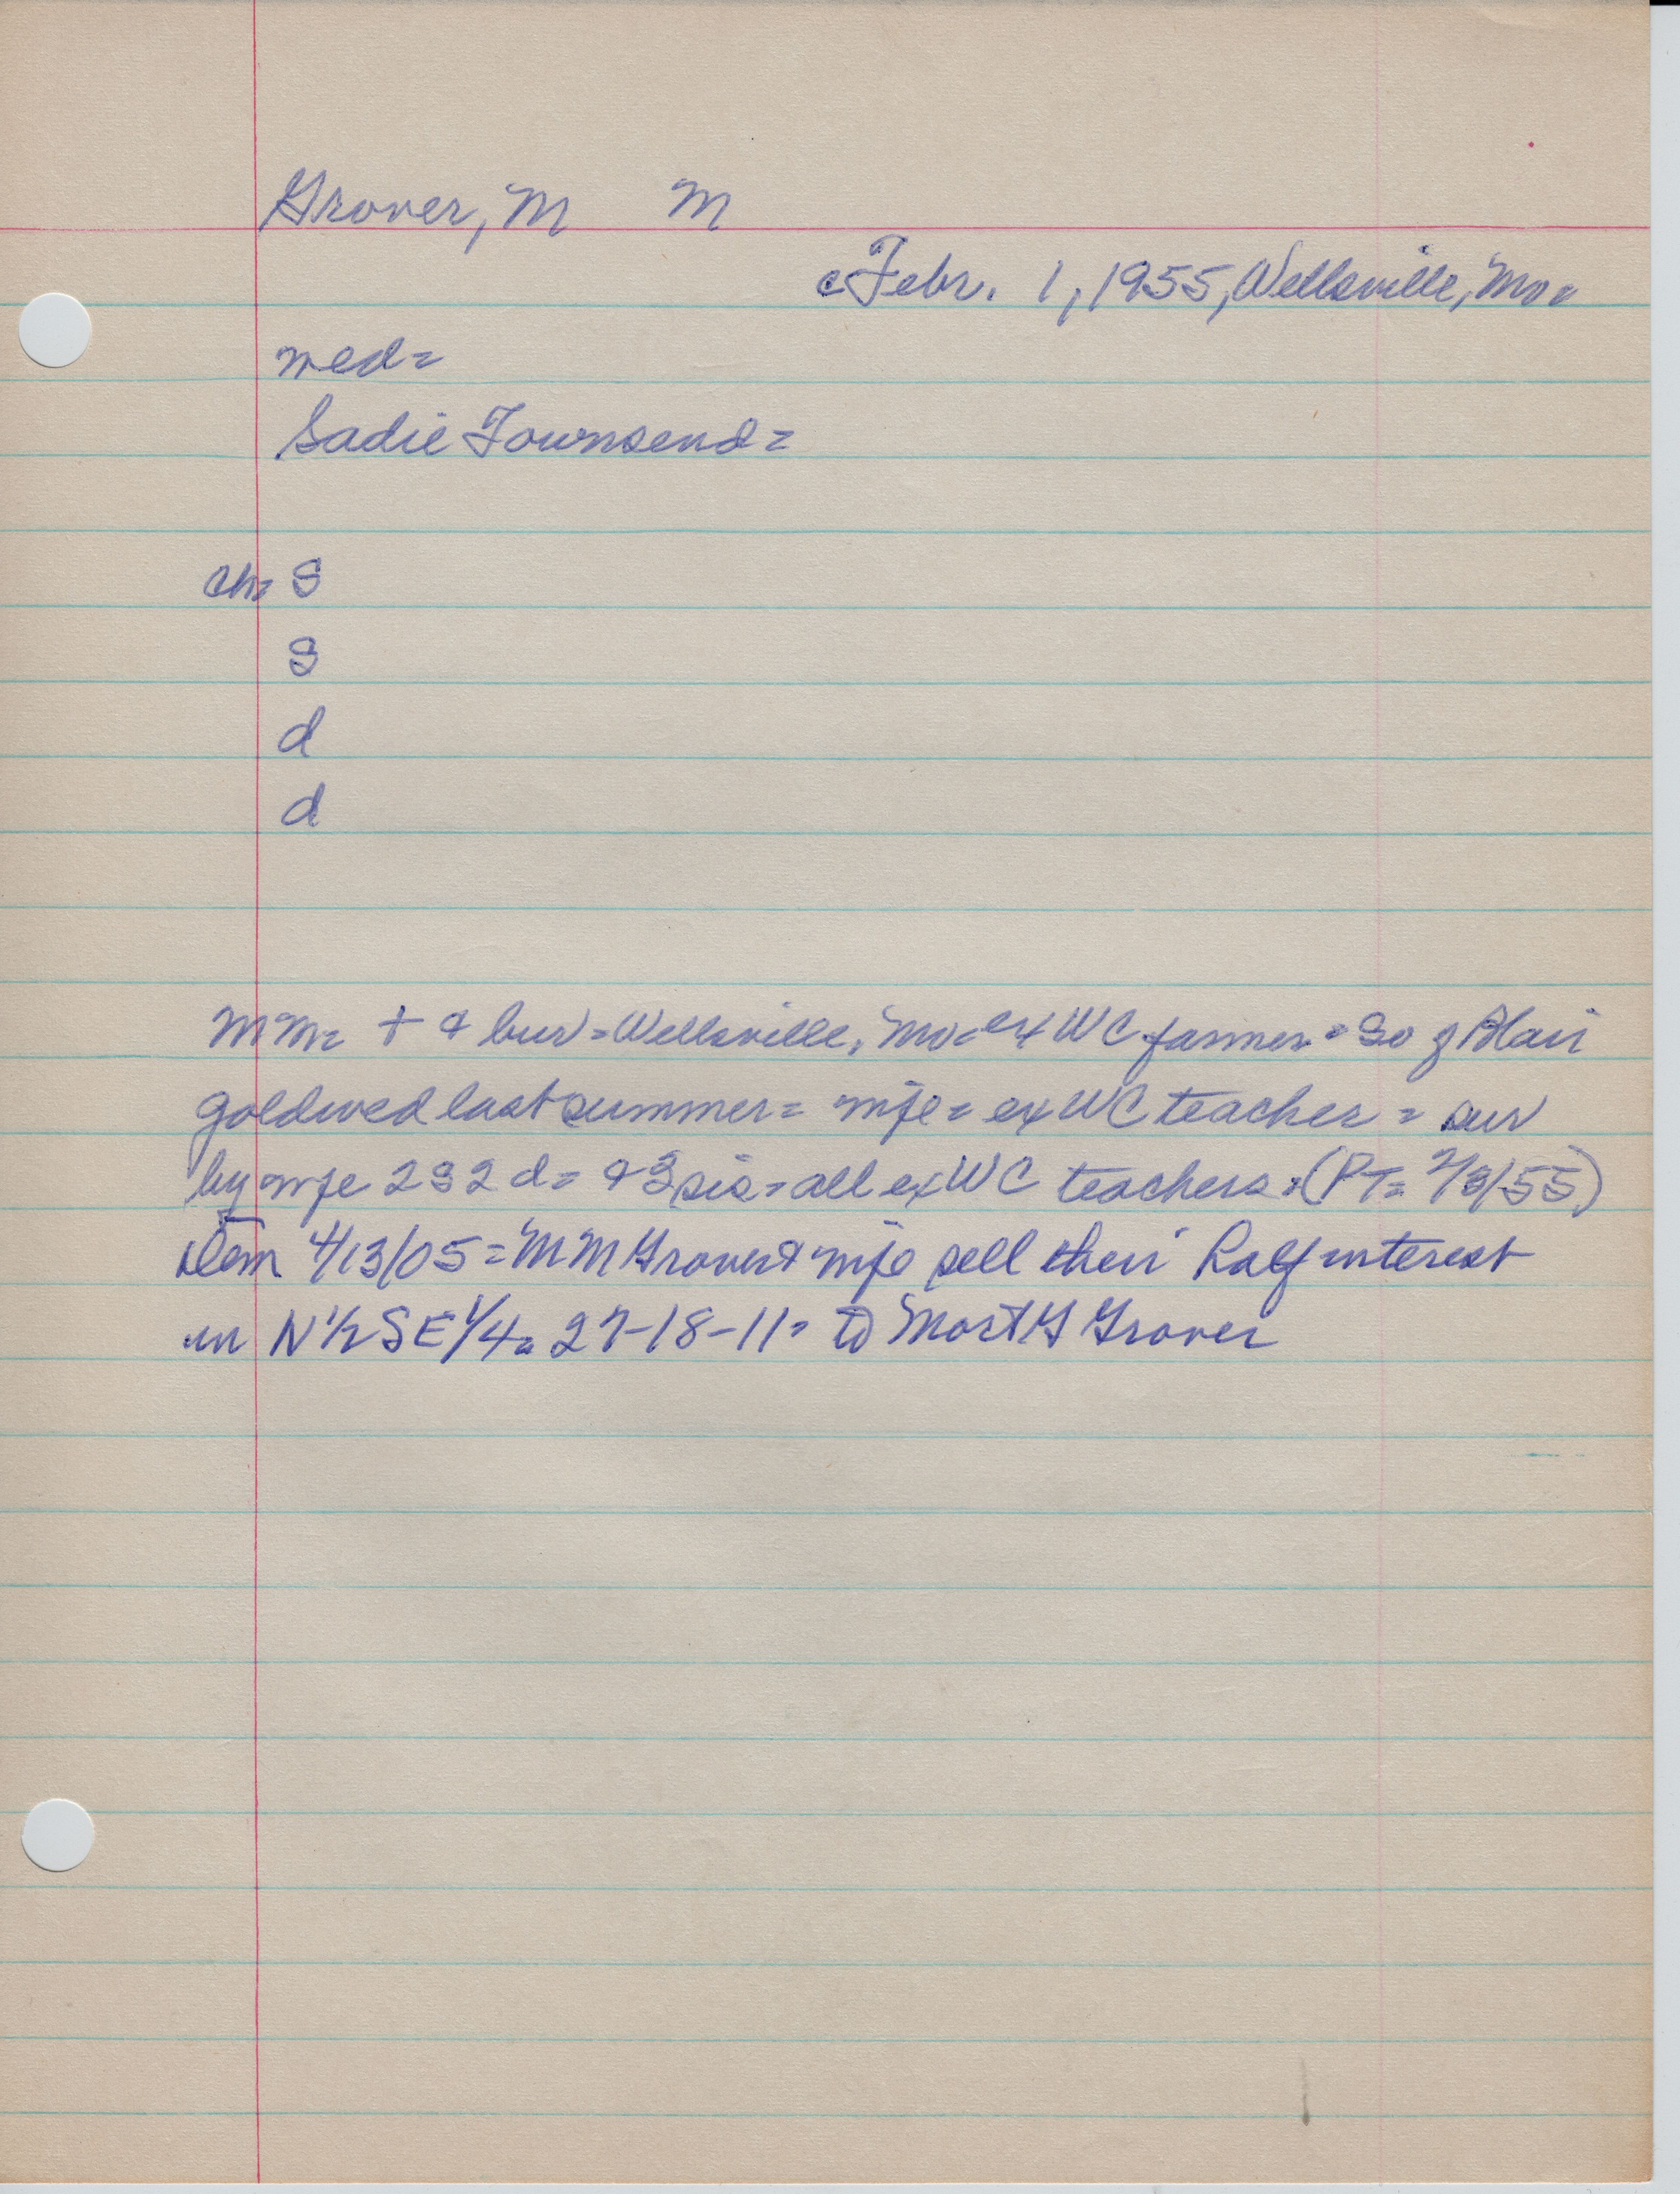 Grover, M M
c Febr. 1, 1955, Wellsville, Mo=
wed=
Sadie Townsend=
ch= S
S
d
d
MM= + & bur=Wellsville, Mo=ex WC farmer=So of Blair
goldwed last summer= wife= ex WC teacher= sur
by wife 2S 2d= & 3 sis=all ex WC teachers=(PT= 2/3/55)
Dem 4/13/05=MM Grover & wife sell their half interest
in N1/2 SE1/4= 27-18-11= to Mort G Grover